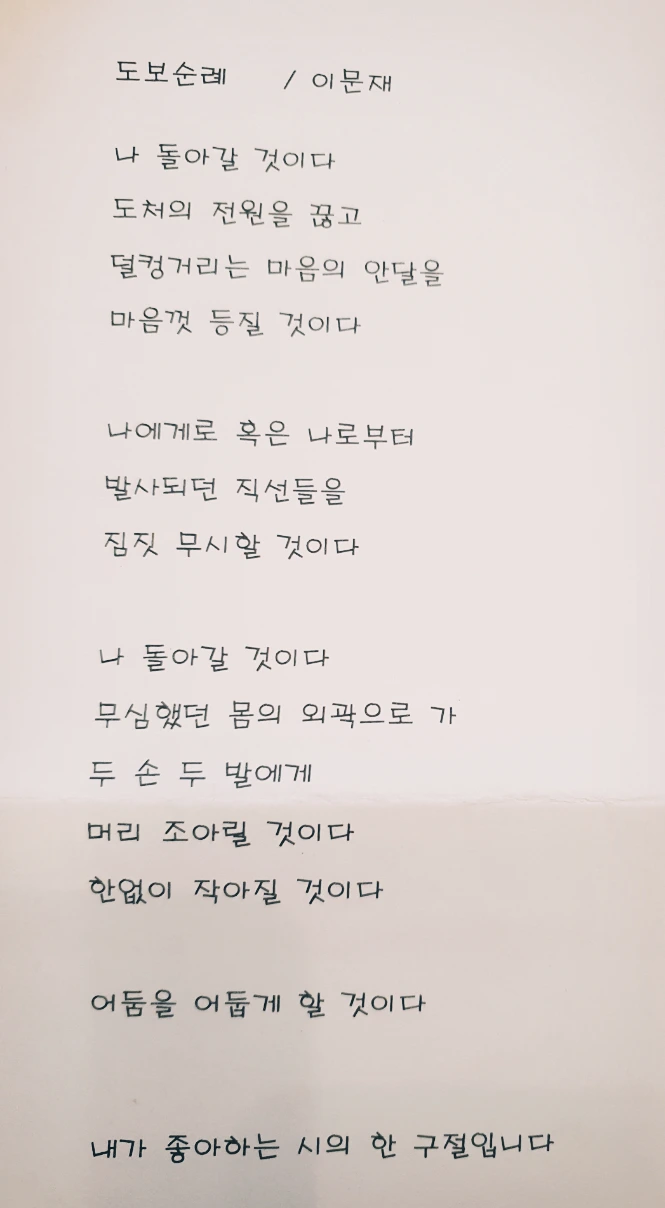 도보순례 / 이문재
나 돌아갈 것이다
도처의 전원을 끊고
덜컹거리는 마음의 안달을
마음껏 등질 것이다
나에게로 혹은 나로부터
발사되던 직선들을
짐짓 무시할 것이다
나 돌아갈 것이다
무심했던 몸의 외곽으로 가
두 손 두 발에게
머리 조아릴 것이다
한없이 작아질 것이다
어둠을 어둡게 할 것이다
내가 좋아하는 시의 한 구절입니다